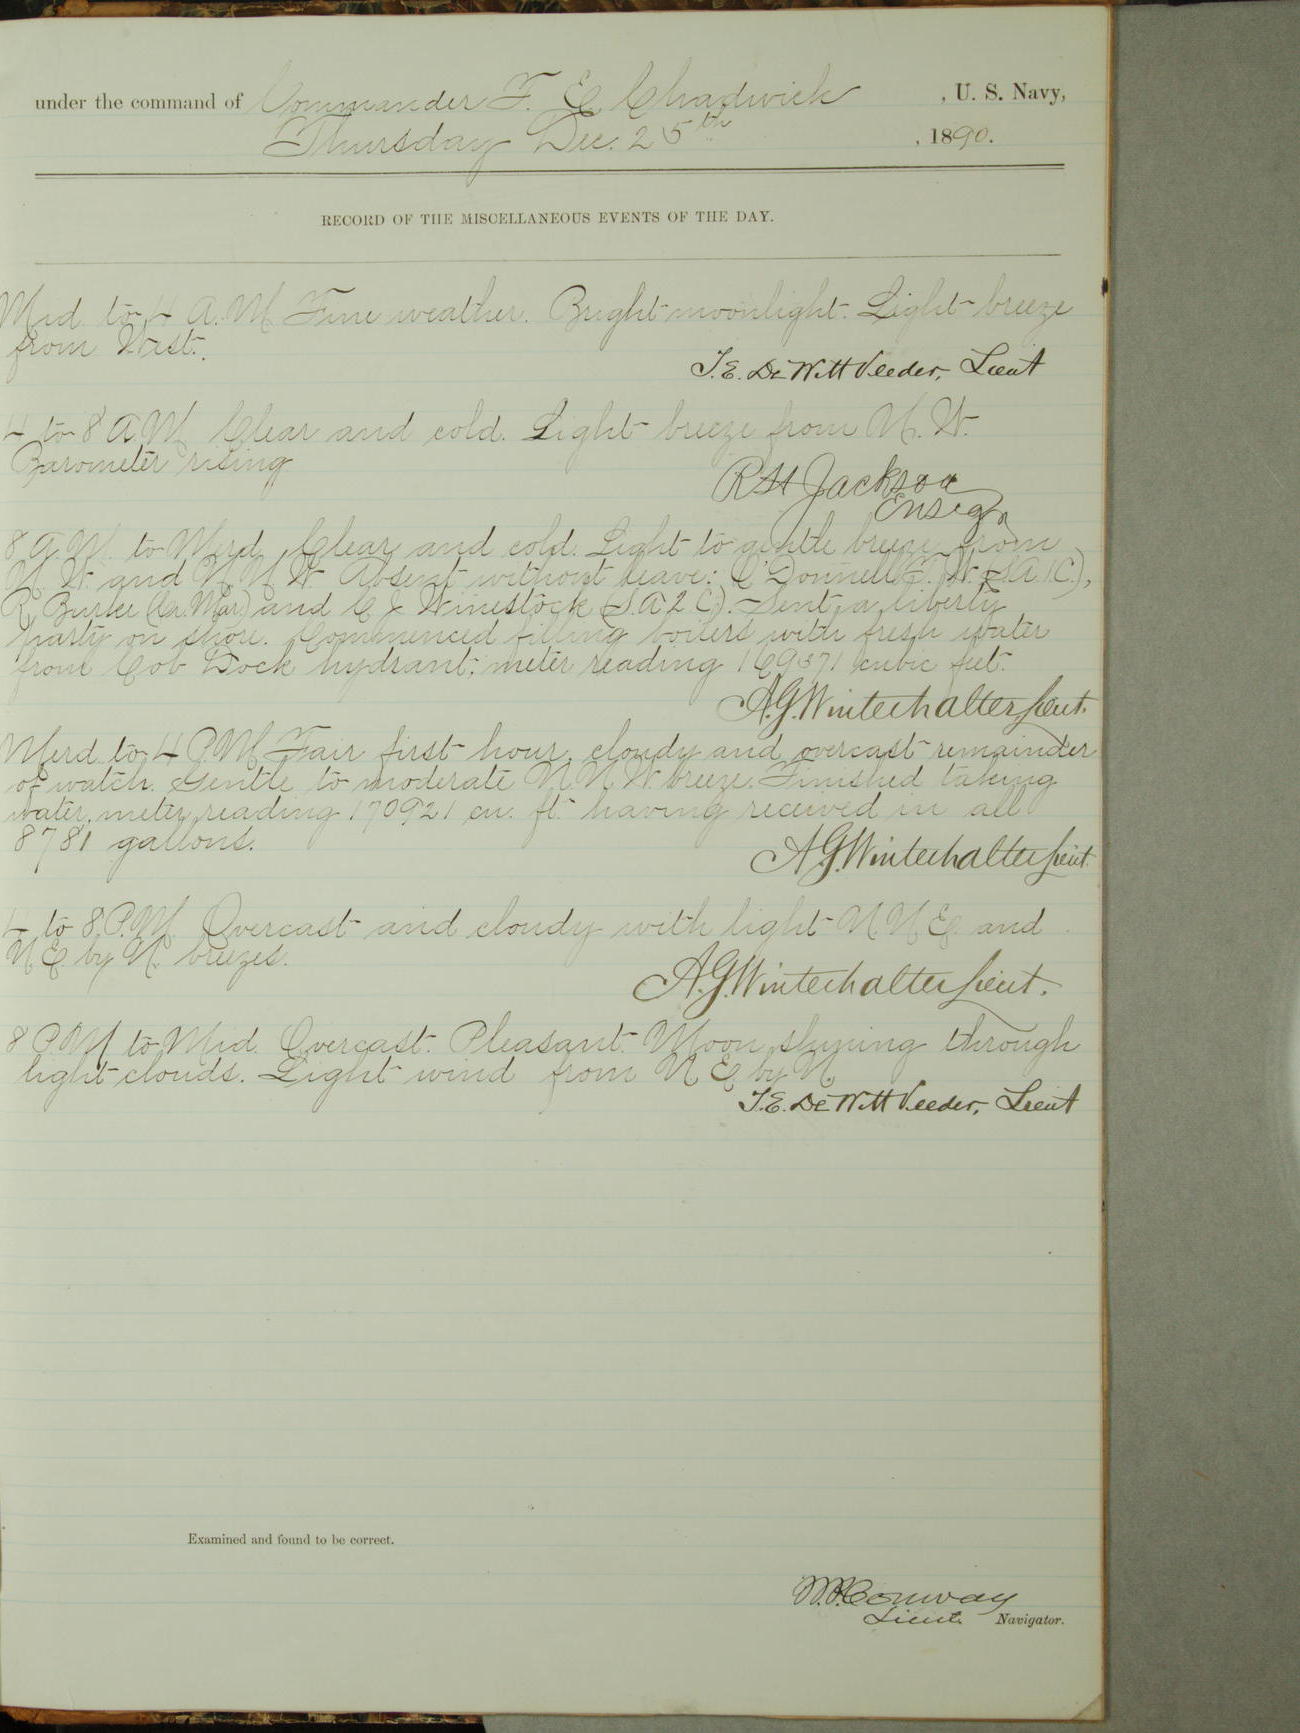 under the command of Commander F. E. Chadwick, U. S. Navy,
Thursday Dec. 25th, 1890.
RECORD OF THE MISCELLANEOUS EVENTS OF THE DAY.
Mid. to 4 A.M. Fine weather. Bright moonlight. Light breeze
from West.
T.E. DeWitt Veeder, Lieut
4 to 8 A.M. Clear and cold. Light breeze from N.W.
Barometer rising
R H Jackson
Ensign
8 A.M. to Merd. Clear and cold. Light to gentle breeze from
N.W. and N.N.W. Absent without leave: O'Donnell F. W. (S.A.1C.),
R. Burke (Mar.) and C J Winestock (S.A 2 C). Sent a liberty
party on shore. Commenced filling boilers with fresh water
from Cob Dock hydrant; meter reading 169371 cubic feet.
A.G. Winterhalter Lieut.
Merd. to 4 P.M. Fair first hour, cloudy and overcast remainder
of watch. Gentle to moderate N.N.W. breeze. Finished taking
water, meter reading 170921 cu. ft. having received in all
8781 gallons.
A.G. Winterhalter Lieut.
4 to 8 P.M. Overcast and cloudy with light N N E. and
N E. by N. breezes.
A.G. Winterhalter Lieut.
8 P.M to Mid. Overcast. Pleasant. Moon shining through
light clouds. Light wind from N E by N
T.E. DeWitt Veeder, Lieut
Examined and found to be correct.
W.P. Conway
Lieut. Navigator.